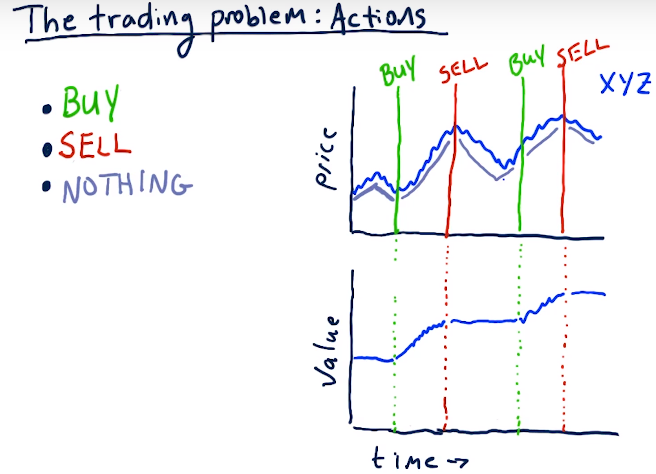 The trading problem: Actions
• BUY
• SELL
• NOTHING
BUY SELL BUY SELL
XYZ
price
value
time →